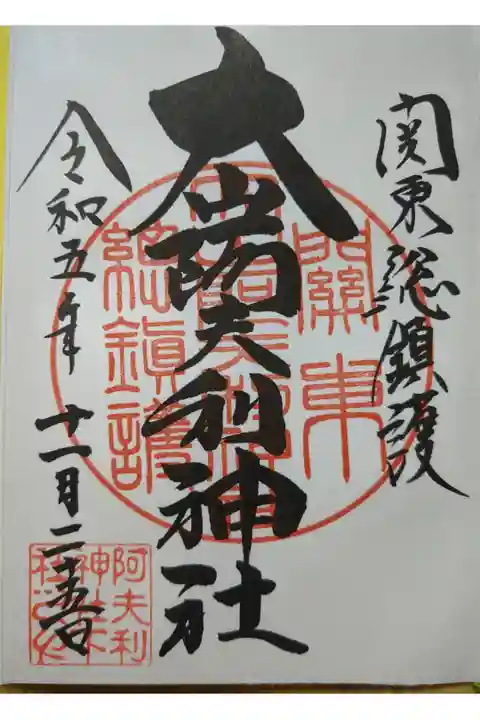 関東総鎮護
大山阿夫利神社
令和五年十一月二十五日
關東
總鎮護
阿夫利
神社下